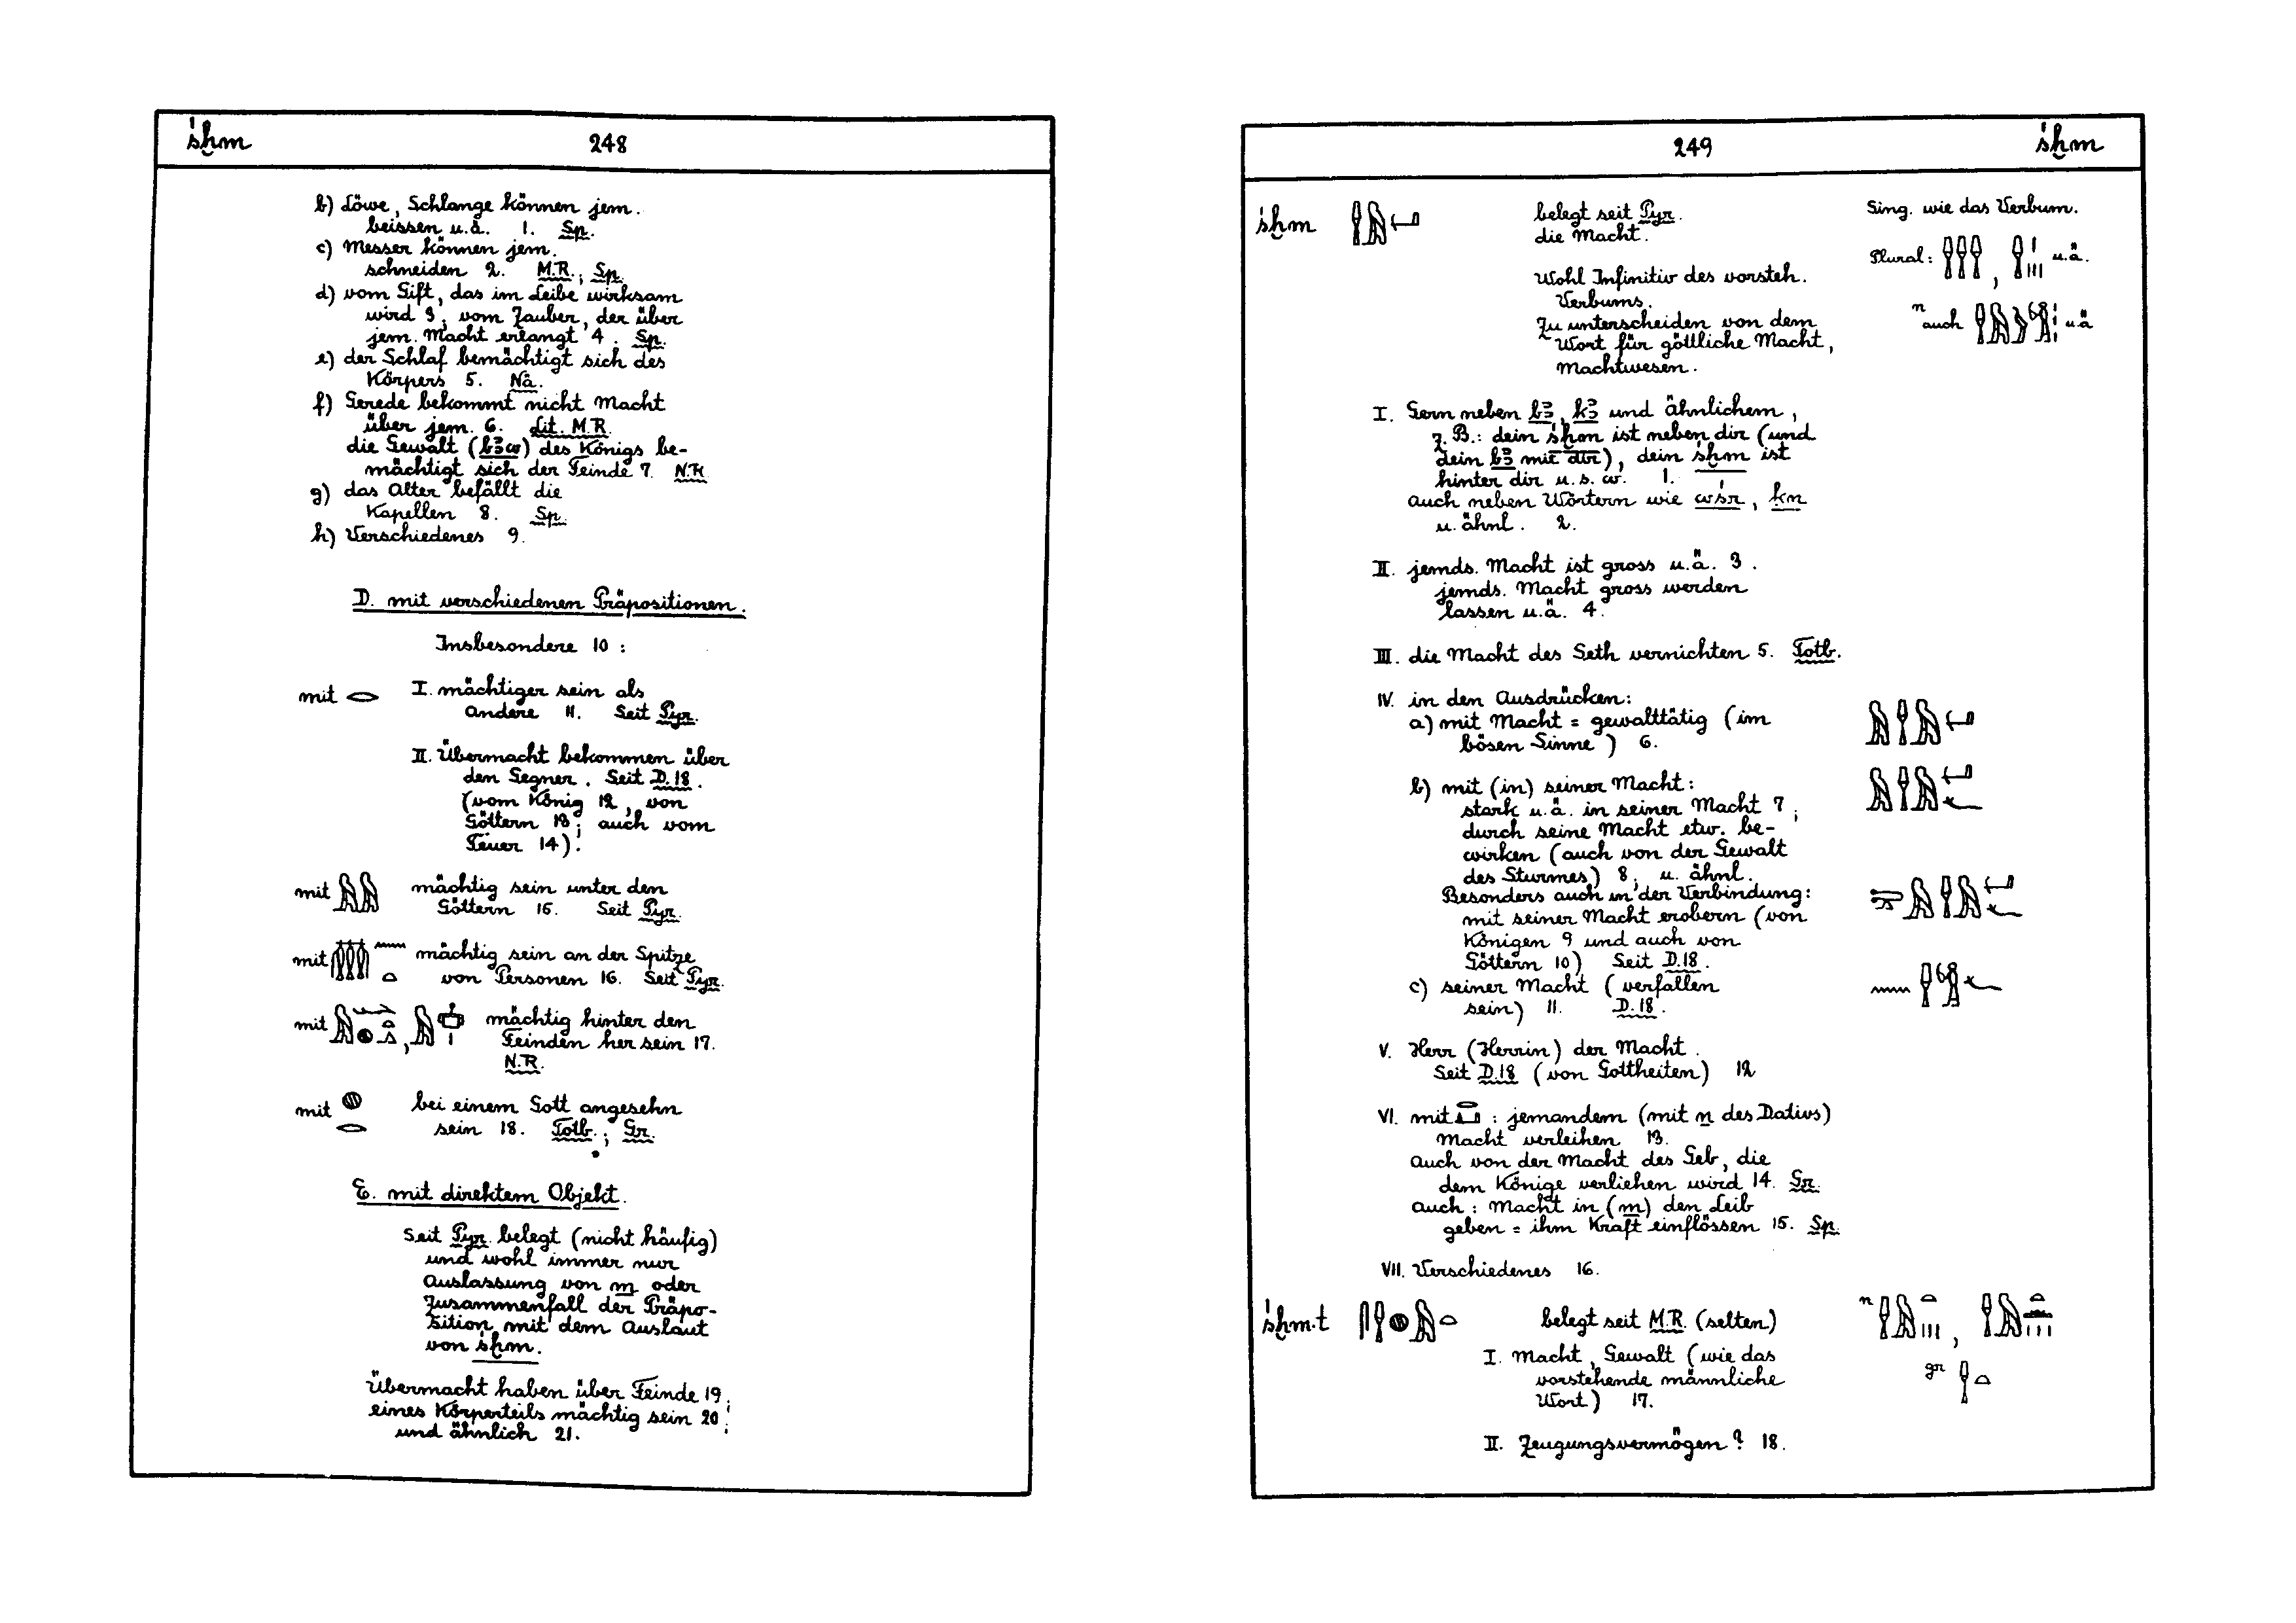 śḫm 248
b) Löwe, Schlange können jem.
beissen u.ä. 1. Sp.
c) Messer können jem.
schneiden 2. M.R.; Sp.
d) vom Gift, das im Leibe wirksam
wird 3; vom Zauber, der über
jem. Macht erlangt 4. Sp.
e) der Schlaf bemächtigt sich des
Körpers 5. Nä.
f) Gerede bekommt nicht Macht
über jem. 6. Lit. M.R.
die Gewalt (bꜣw) des Königs be-
mächtigt sich der Feinde 7. N.R.
g) das Alter befällt die
Kapellen 8. Sp.
h) Verschiedenes 9.
D. mit verschiedenen Präpositionen.
Insbesondere 10:
mit 𓂋 I. mächtiger sein als
Andere 11. Seit Pyr.
II. Übermacht bekommen über
den Gegner. Seit D.18.
(vom König 12, von
Göttern 13; auch vom
Feuer 14).
mit 𓅓𓅓 mächtig sein unter den
Göttern 15. Seit Pyr.
mit 𓏃𓈖𓏏 mächtig sein an der Spitze
von Personen 16. Seit Pyr.
mit mächtig hinter den
Feinden her sein 17.
N.R.
mit 𓐍𓂋 bei einem Gott angesehn
sein 18. Totb.; Gr.
E. mit direktem Objekt.
Seit Pyr. belegt (nicht häufig)
und wohl immer nur
Auslassung von m oder
Zusammenfall der Präpo-
sition mit dem Auslaut
von śḫm.
Übermacht haben über Feinde 19;
eines Körperteils mächtig sein 20;
und ähnlich 21.
249 śḫm
śḫm 𓌂𓅓𓂡 belegt seit Pyr. Sing. wie das Verbum.
die Macht.
Plural: 𓌂𓌂𓌂, 𓌂𓏤𓏥 u.ä.
Wohl Infinitiv des vorsteh.
Verbums.
Zu unterscheiden von dem
Wort für göttliche Macht,
Machtwesen.
n auch u.ä
I. Gern neben bꜣ, kꜣ und Ähnlichem,
z.B.: dein śḫm ist neben dir (und
dein bꜣ mit dir), dein śḫm ist
hinter dir u.s.w. 1.
auch neben Wörtern wie wśr, ḳn
u. ähnl. 2.
II. jemds. Macht ist gross u.ä. 3.
jemds. Macht gross werden
lassen u.ä. 4.
III. die Macht des Seth vernichten 5. Totb.
IV. in den Ausdrücken:
a) mit Macht = gewalttätig (im
bösen Sinne) 6. 𓅓𓌂𓅓𓂡
b) mit (in) seiner Macht: 𓅓𓌂𓅓𓂡𓆑
stark u.ä. in seiner Macht 7;
durch seine Macht etw. be-
wirken (auch von der Gewalt
des Sturmes) 8; u. ähnl.
Besonders auch in der Verbindung:
mit seiner Macht erobern (von
Königen 9 und auch von
Göttern 10) Seit D.18.
c) seiner Macht (verfallen
sein) 11. D.18. 𓈖𓌂𓀜𓆑
V. Herr (Herrin) der Macht.
Seit D.18 (von Gottheiten) 12
VI. mit 𓂋𓂞 : jemandem (mit n des Dativs)
Macht verleihen 13.
Auch von der Macht des Geb, die
dem Könige verliehen wird 14. Gr.
auch: Macht in (m) den Leib
geben = ihm Kraft einflössen 15. Sp.
VII. Verschiedenes 16.
śḫm.t 𓋴𓌂𓐍𓅓𓏏 belegt seit M.R. (selten) n
I. Macht, Gewalt (wie das
vorstehende männliche
Wort) 17. gr 𓌂𓏏
II. Zeugungsvermögen? 18.